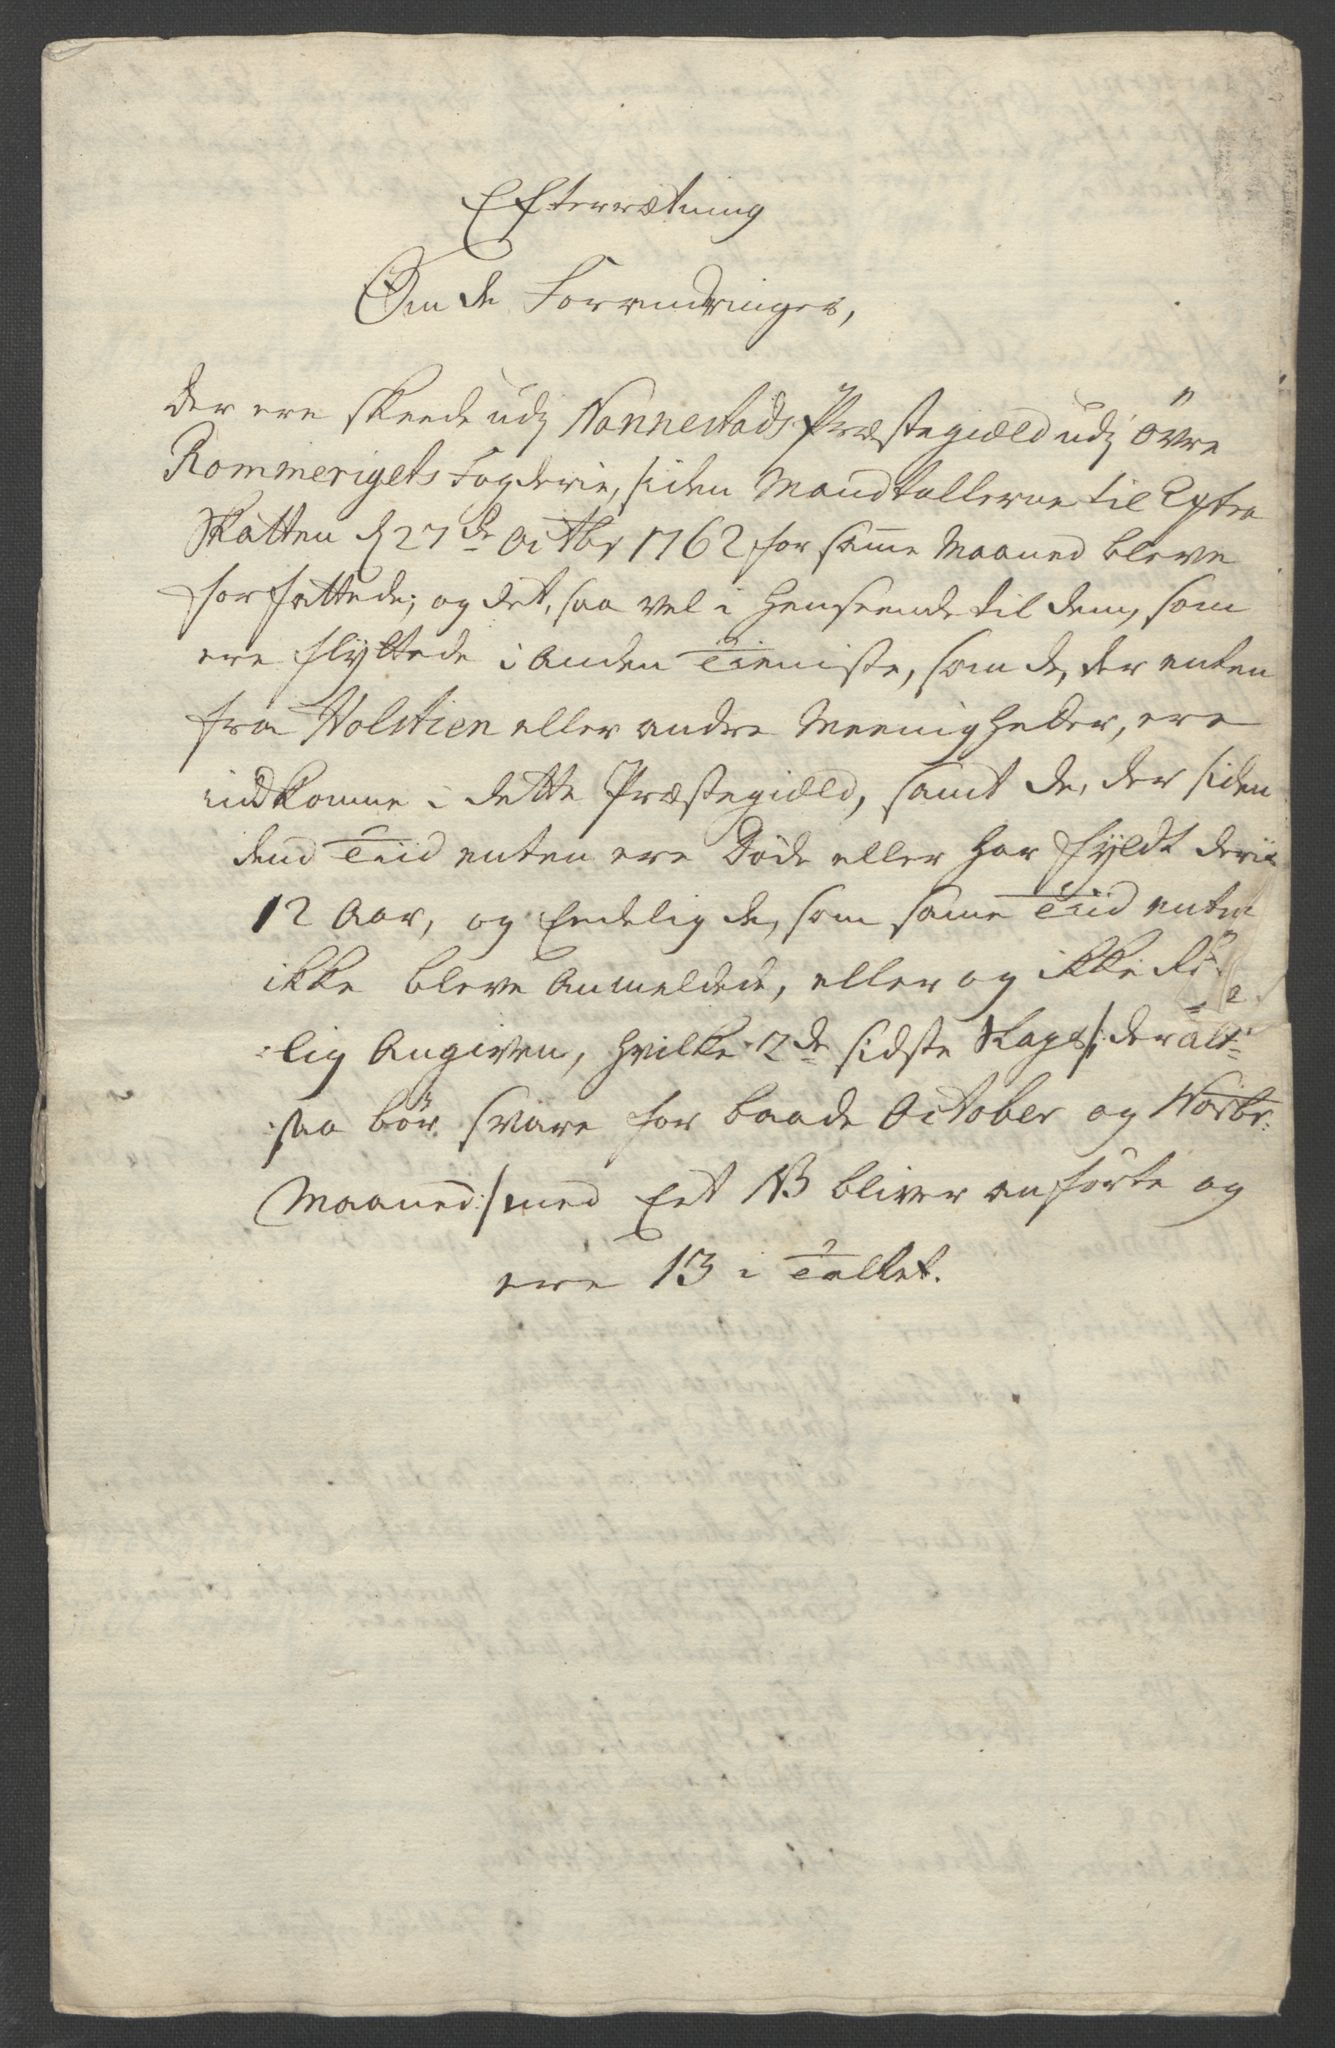 Efterrætning
Om de Forandringer,
der ere skeede udj Nannestads Præstegield udj Övre
Rommerigets Fogderie, siden Mandtallerne til Extra
Skatten d 27de Octbr 1762 for samme Maaned bleve
forfattede; og det, saa vel i henseende til dem, som
ere flyttede i anden Tieniste, som de, der enten
fra Holstien eller andre Meenigheder, ere
indkomne i dette Præstegield, samt de, der siden
dend Tiid enten ere døde eller har fyldt deris
12 Aar, og Endelig de, som same Tiid enten
ikke bleve Anmeldede, eller og ikke
lig Angiven, hvilke 2de sidste Slags /: der alt-
saa bör svare for baade October og Novbr:
Maaned :/ med Eet NB bliver anförte og
ere 13 i Tallet.